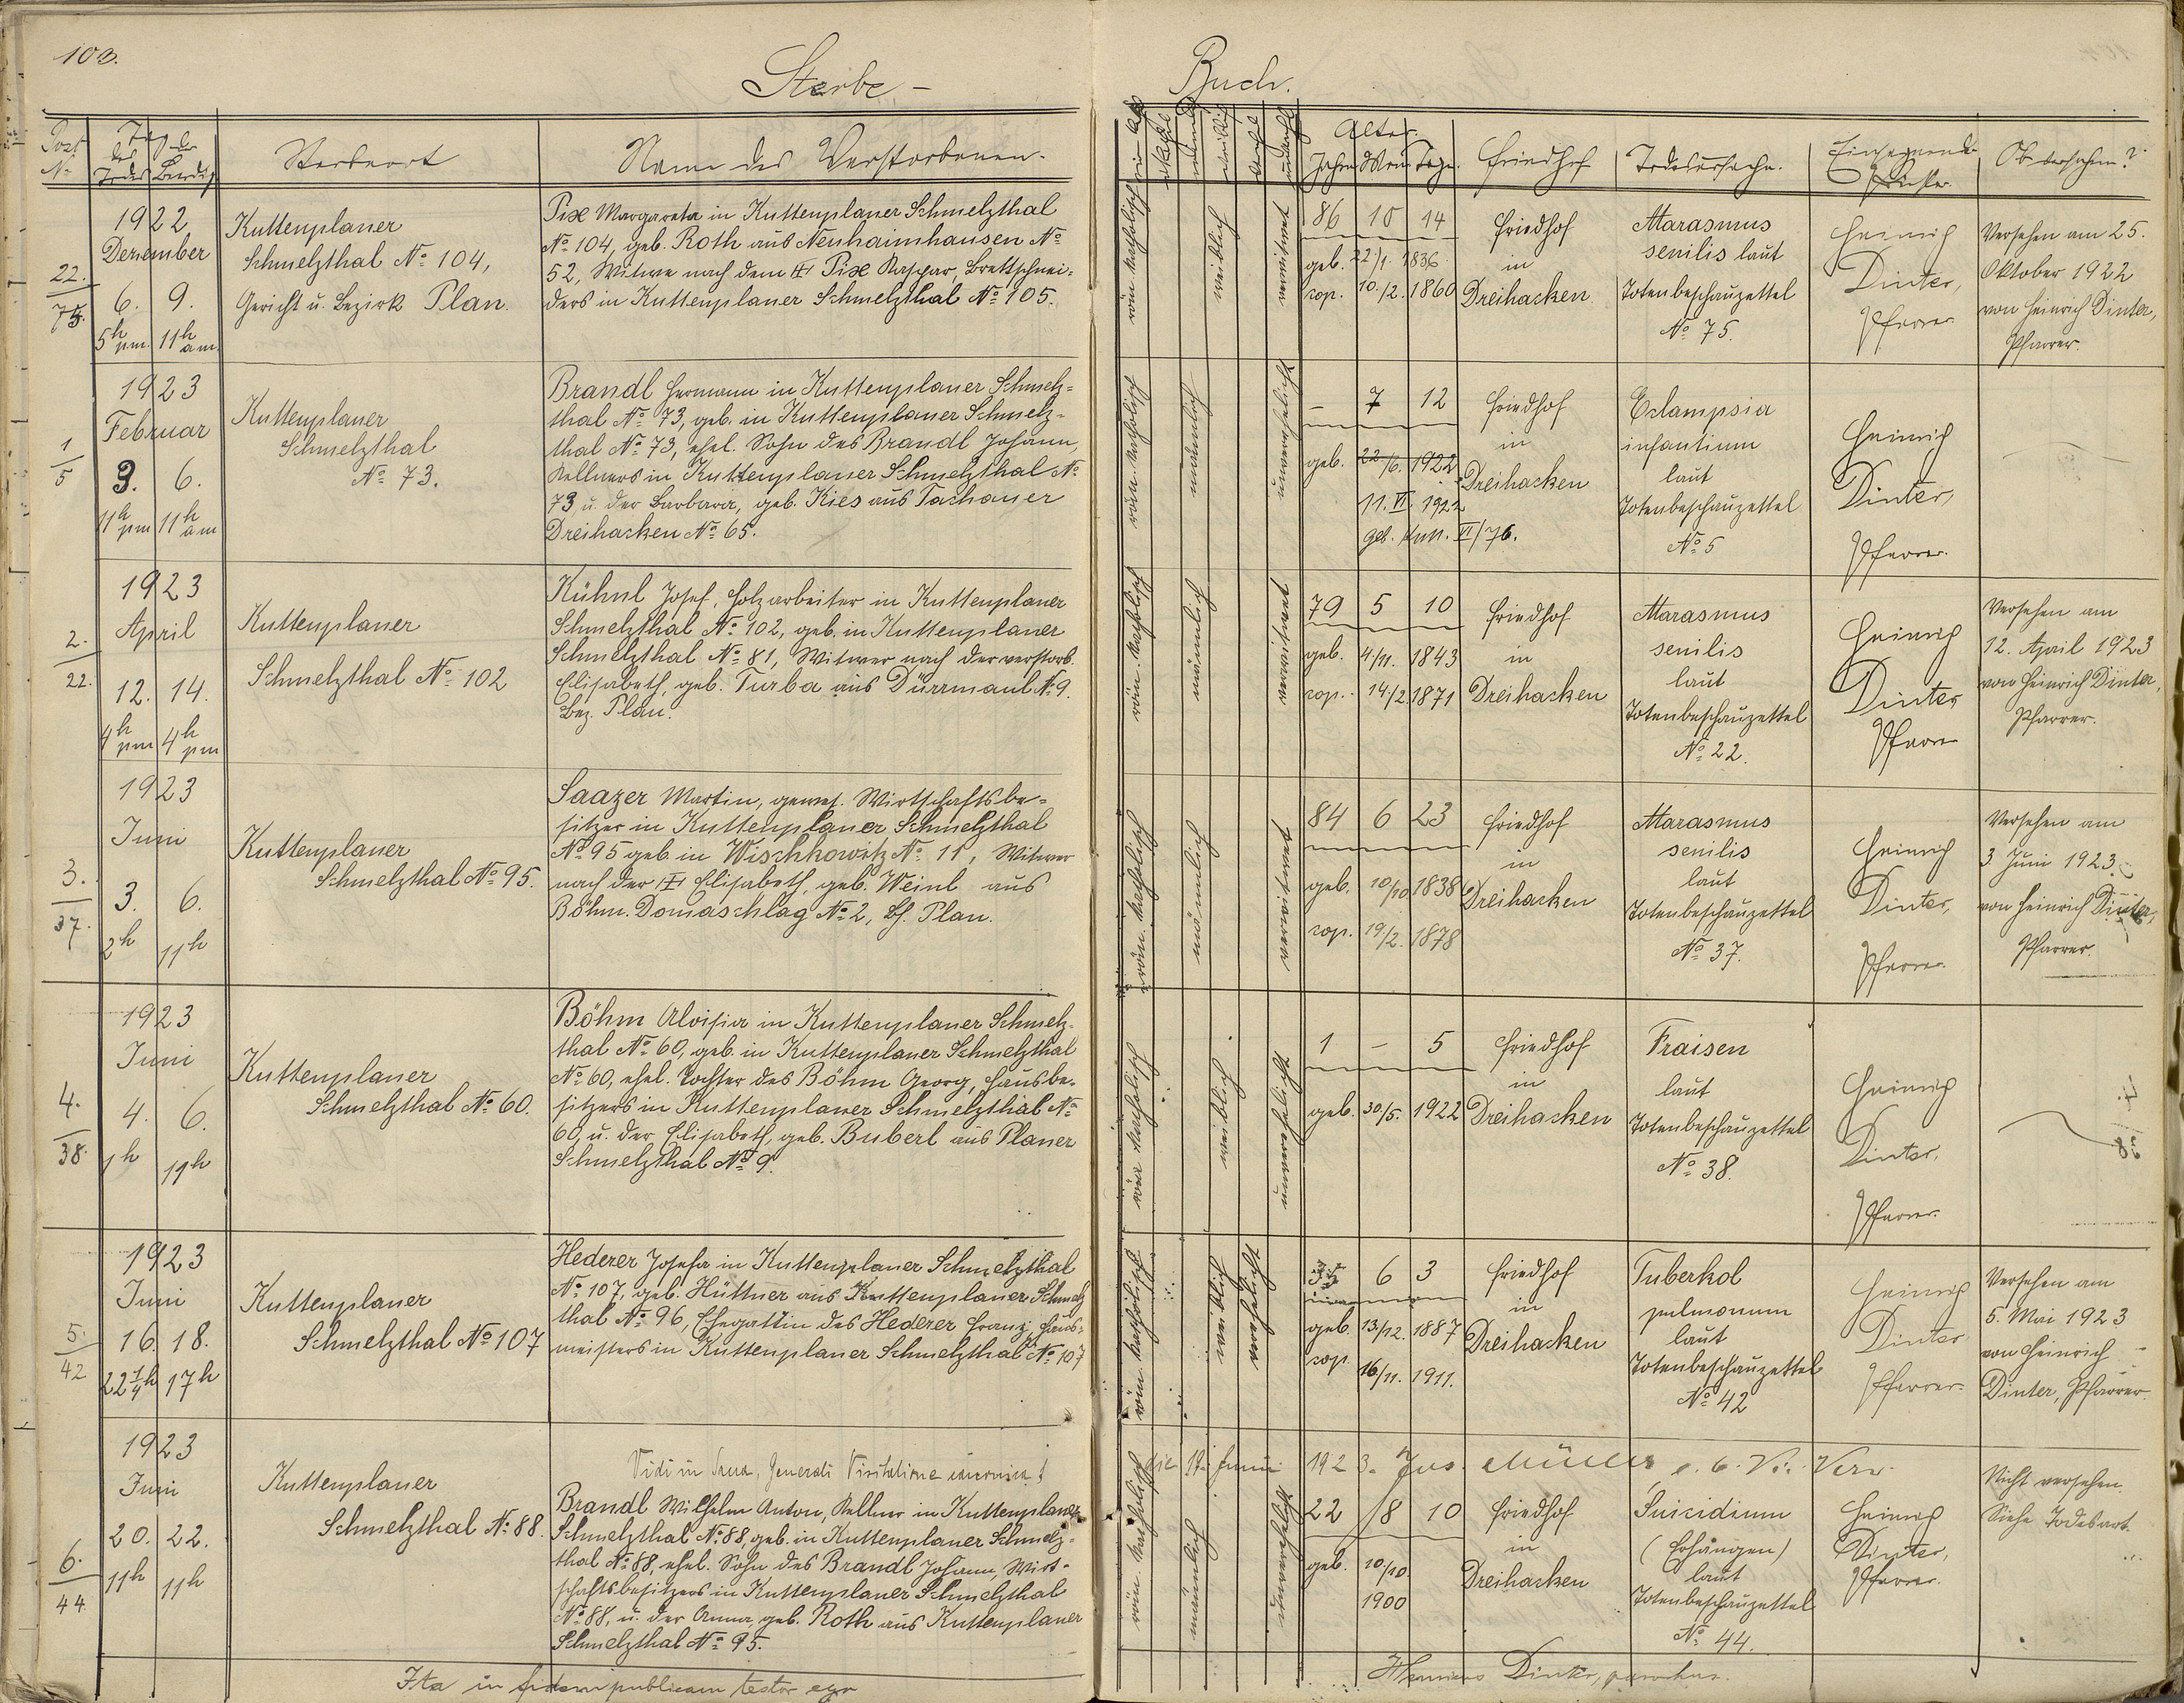 103.
Sterbe-
Buch.
Post
No
Tag
des der
Todes Beerdig
Sterbeort
Name des Verstorbenen.
Alter
Jahre Mon. Tage.
Friedhof
Todesursache.
Einsegnender
Priester.
Ob versehen?
22.
75.
1922
Dezember
6. 9.
5h pm. 11h am.
Kuttenplaner
Schmelzthal No 104,
Gericht u. Bezirk Plan.
Pix Margareta in Kuttenplaner Schmelzthal
No 104, geb. Roth aus Neuhaimhausen No
52, Witwe nach dem Pix Kaspar, Brettschnei-
ders in Kuttenplaner Schmelzthal No 105.
röm. katholisch
weiblich
verwitwet
86 10 14
geb. 22/1. 1836
cop. 10./2. 1860
Friedhof
in
Dreihacken
Marasmus
senilis laut
Totenbeschauzettel
No 75.
Heinrich
Dinter,
Pfarrer.
Versehen am 25.
Oktober 1922
von Heinrich Dinter,
Pfarrer.
1
5
1923
Februar
3. 6.
11h pm 11h am
Kuttenplaner
Schmelzthal
No 73.
Brandl Hermann in Kuttenplaner Schmelz-
thal No 73, geb. in Kuttenplaner Schmelz-
thal No 73, ehel. Sohn des Brandl Johann,
Kellners in Kuttenplaner Schmelzthal No
73 u. der Barbara, geb. Kies aus Tachauer
Dreihacken No 65.
röm. katholisch
männlich
unverehelicht
- 7 12
geb. 22/6. 1922
11. VI. 1922
geb. VI/76.
Friedhof
in
Dreihacken
Eclampsia
infantium
laut
Totenbeschauzettel
No 5
Heinrich
Dinter,
Pfarrer.
2.
22.
1923
April
12. 14.
4h pm 4h pm
Kuttenplaner
Schmelzthal No 102
Kühnl Josef, Holzarbeiter in Kuttenplaner
Schmelzthal No 102, geb. in Kuttenplaner
Schmelzthal No 81, Witwer nach der verstorb.
Elisabeth, geb. Turba aus Dürrmaul No 9.
Bez. Plan.
röm. katholisch
männlich
verwitwet
79 5 10
geb. 4./11. 1843
cop. 14/2. 1871
Friedhof
in
Dreihacken
Marasmus
senilis
laut
Totenbeschauzettel
No 22.
Heinrich
Dinter
Pfarrer
Versehen am
12. April 1923
von Heinrich Dinter,
Pfarrer.
3.
37.
1923
Juni
3. 6.
2h 11h
Kuttenplaner
Schmelzthal No 95.
Saazer Martin, gewes. Wirtschaftsbe-
sitzer in Kuttenplaner Schmelzthal
No 95 geb. in Wischkowitz No 11, Witwer
nach der Elisabeth, geb. Weinl aus
Böhm. Domaschlag No 2, Bz. Plan.
röm. katholisch
männlich
verwitwet
84 6 23
geb. 10/10 1838
cop. 19./2. 1878
Friedhof
in
Dreihacken
Marasmus
senilis
laut
Totenbeschauzettel
No 37.
Heinrich
Dinter,
Pfarrer.
Versehen am
3 Juni 1923.
von Heinrich Dinter,
Pfarrer.
4.
38.
1923
Juni
4. 6.
1h 11h
Kuttenplaner
Schmelzthal No 60.
Böhm Aloisia in Kuttenplaner Schmelz-
thal No 60, geb. in Kuttenplaner Schmelzthal
No 60, ehel. Tochter des Böhm Georg, Hausbe-
sitzers in Kuttenplaner Schmelzthal No
60, u. der Elisabeth, geb. Buberl aus Planer
Schmelzthal No 9.
röm. katholisch
weiblich
unverehelicht
1 - 5
geb. 30./5. 1922
Friedhof
in
Dreihacken
Fraisen
laut
Totenbeschauzettel
No 38.
Heinrich
Dinter,
Pfarrer.
5.
42
1923
Juni
16. 18.
22 1/4h 17h
Kuttenplaner
Schmelzthal No 107
Hederer Josefa in Kuttenplaner Schmelzthal
No 107, geb. Hüttner aus Kuttenplaner Schmelz
thal No 96, Ehegattin des Hederer Franz, Haus-
meisters in Kuttenplaner Schmelzthal No 107
röm. katholisch
weiblich
verehelicht
6 3
geb. 13/12. 1887
cop 16/11. 1911.
Friedhof
in
Dreihacken
Tuberkol
pulmonum
laut
Totenbeschauzettel
No 42
Heinrich
Dinter
Pfarrer.
Versehen am
5. Mai 1923
von Heinrich
Dinter, Pfarrer.
Vidi in Generali Visitatione canonica
die 19. Junii 1923. Jos. Müller
6.
44
1923
Juni
20. 22.
11h 11h
Kuttenplaner
Schmelzthal No 88.
Brandl Wilhelm Anton, Kellner in Kuttenplaner
Schmelzthal No 88, geb. in Kuttenplaner Schmelz-
thal No 88, ehel. Sohn des Brandl Johann, Wirt-
schaftsbesitzers in Kuttenplaner Schmelzthal
No 88, u. der Anna, geb. Roth aus Kuttenplaner
Schmelzthal No 95.
röm. katholisch
männlich
unverehelicht
22 8 10
geb. 10./10
1900
Friedhof
in
Dreihacken
Suicidium
(Erhängen)
laut
Totenbeschauzettel
No 44.
Heinrich
Dinter,
Pfarrer.
Nicht versehen.
Siehe Todesart.
Ita in fidem publicam testor ego
Henricus Dinter, parochus.